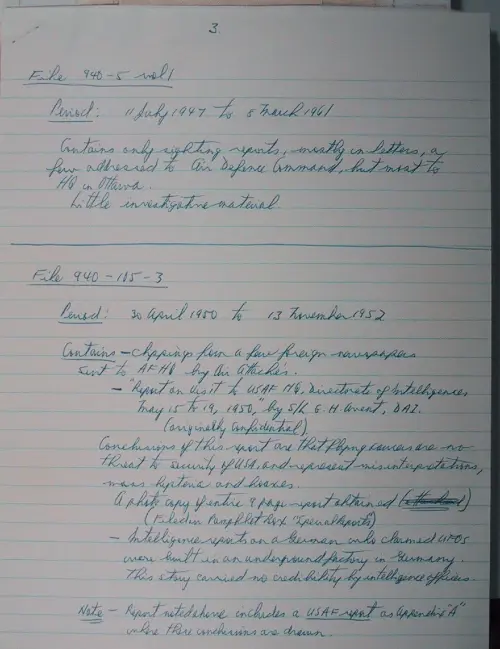 3.
File 940-5 vol 1
Period: 11 July 1947 to 5 March 1961
Contains only sighting reports, mostly in letters, a
few addressed to Air Defence Command, but most to
HQ in Ottawa.
Little investigative material
File 940-105-3
Period: 30 April 1950 to 13 November 1952
Contains - clippings from a few foreign newspapers
sent to AFHQ by Air Attachés.
- "Report on Visit to USAF HQ, Directorate of Intelligence
May 15 to 19, 1950," by S/L G. H. DAI.
(originally Confidential)
Conclusions of this report are that flying saucers are no
threat to security of USA, and represent misinterpretations,
mass hysteria and hoaxes.
A photo copy of entire 9 page report obtained
(Filed in Pamphlet Box "Special Reports")
- Intelligence report on a German who claimed UFOs
were built in an underground factory in Germany.
This story carried no credibility by intelligence officers.
Note - Report noted above includes a USAF report as Appendix "A"
where these conclusions are drawn.